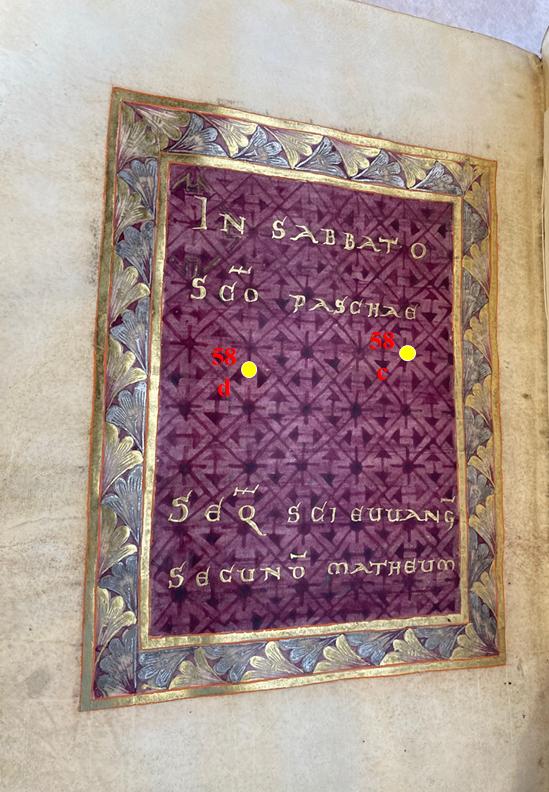 IN SABBATO
SC̄O PASCHAE
58
58
d
c
SEQ̄ SCI EUUANḠ
SECUND̄ MATHEUM